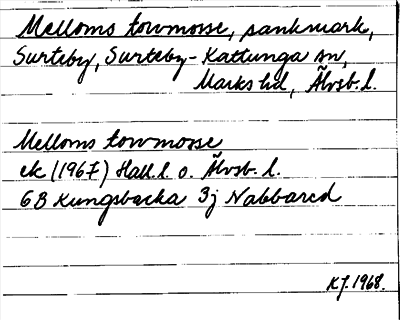 Melloms torvmosse, sankmark,
Surteby, Surteby-Kattunga sn,
Marks hd, Älvsb. l.
Melloms torvmosse
ek (1967) Hall. l. o. Älvsb. l.
6B Kungsbacka 3j Nabbared
KJ. 1968.